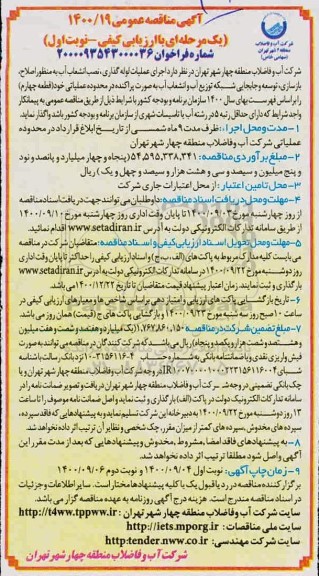 آگهی مناقصه عمومی ۱۴۰۰/۱۹
(یک مرحله ای با ارزیابی کیفی - نوبت اول)
شماره فراخوان ۲۰۰۰۰۹۳۵۴۳۰۰۰۰۳۶
شرکت آب و فاضلاب
منطقه ۴ شهر تهران
(سهامی خاص)
شرکت آب و فاضلاب منطقه چهار شهر تهران در نظر دارد اجرای عملیات لوله گذاری، نصب انشعاب آب به منظور اصلاح،
بازسازی، توسعه و جابجایی شبکه توزیع آب و انشعاب آب به صورت پراکنده در محدوده عملیاتی خود (قطعه چهارم)
را بر اساس فهرست بهای سال ۱۴۰۰ سازمان برنامه و بودجه کشور با شرایط ذیل از طریق مناقصه عمومی به پیمانکار
واجد شرایط که دارای حداقل رتبه ۵ در رشته آب یا تاسیسات شهری از سازمان برنامه و بودجه کشور باشد واگذار نماید.
۱- مدت و محل اجرا: ظرف مدت ۹ ماه شمسی از تاریخ ابلاغ قرارداد در محدوده
عملیاتی شرکت آب و فاضلاب منطقه چهار شهر تهران
۲- مبلغ برآوردی مناقصه: ۵۴,۵۹۵,۳۳۸,۳۴۱ (پنجاه و چهار میلیارد و پانصد و نود
و پنج میلیون و سیصد و سی و هشت هزار و سیصد و چهل و یک) ریال
۳- محل تامین اعتبار: از محل اعتبارات جاری شرکت
۴- مهلت و محل دریافت اسناد مناقصه: داوطلبان می توانند جهت دریافت اسناد مناقصه
از روز چهارشنبه مورخ ۱۴۰۰/۰۹/۰۳ تا پایان وقت اداری روز چهارشنبه مورخ ۱۴۰۰/۰۹/۱۰
از طریق سامانه تدارکات الکترونیکی دولت به آدرس www.setadiran.ir اقدام نمایند.
۵- مهلت و محل تحویل اسناد ارزیابی کیفی و اسناد مناقصه: متقاضیان شرکت در مناقصه
می بایست کلیه مدارک مربوط به پاکت های (الف، ب، ج) و اسناد ارزیابی کیفی را حداکثر تا پایان وقت اداری
روز دوشنبه مورخ ۱۴۰۰/۰۹/۲۲ در سامانه تدارکات الکترونیکی دولت به آدرس www.setadiran.ir
بارگذاری و ثبت نمایند. زمان اعتبار پیشنهاد قیمت متقاضیان تا تاریخ ۱۴۰۰/۱۲/۲۲ می باشد.
۶- تاریخ بازگشایی پاکت های ارزیابی و امتیاز دهی بر اساس شاخص ها و معیارهای ارزیابی کیفی در
ساعت ۱۰ صبح روز سه شنبه مورخ ۱۴۰۰/۰۹/۲۳ و بازگشایی پاکت های ج (قیمت) همان روز می باشد.
۷- مبلغ تضمین شرکت در مناقصه ۱,۷۶۷,۸۶۰,۱۵۰ (یک میلیارد و هفتصد و شصت و هفت میلیون
و هشتصد و شصت هزار و یکصد و پنجاه) ریال می باشد که شرکت کنندگان در مناقصه می توانند به صورت
فیش واریزی نقدی و یا ضمانتنامه بانکی به شماره حساب نزد بانک رسالت با شناسه
شبای به نام شرکت آب و فاضلاب منطقه چهار شهر تهران و یا
چک بانکی تضمینی در وجه شرکت آب و فاضلاب منطقه چهار شهر تهران دریافت و تصویر ضمانت نامه را در
سامانه تدارکات الکترونیک دولت در پاکت (الف) بارگذاری و ثبت نماید و اصل ضمانت نامه موصوف را تا ساعت
۱۳ روز دوشنبه مورخ ۱۴۰۰/۰۹/۲۲ به دبیرخانه این شرکت تسلیم نماید و به پیشنهادهایی که فاقد سپرده،
سپرده های مخدوش، سپرده های کمتر از میزان مقرر، چک شخصی و نظایر آن ترتیب اثر داده نخواهد شد.
۸- به پیشنهادهای فاقد امضا، مشروط، مخدوش و پیشنهادهایی که بعد از مدت مقرر این
آگهی واصل شود مطلقا ترتیب اثر داده نخواهد شد.
۹- زمان چاپ آگهی: نوبت اول ۱۴۰۰/۰۹/۰۴ و نوبت دوم ۱۴۰۰/۰۹/۰۶
برگزار کننده مناقصه در رد یا قبول یک یا کلیه پیشنهادها مختار است. سایر اطلاعات و جزئیات
در اسناد مناقصه مندرج است. هزینه درج آگهی روزنامه به عهده برنده مناقصه خواهد بود.
سایت شرکت آب و فاضلاب منطقه چهار شهر تهران: http://t4ww.tppww.ir
سایت ملی مناقصات: http://iets.mporg.ir
سایت شرکت مهندسی: http:tender.nww.co.ir
شرکت آب و فاضلاب منطقه چهار شهر تهران